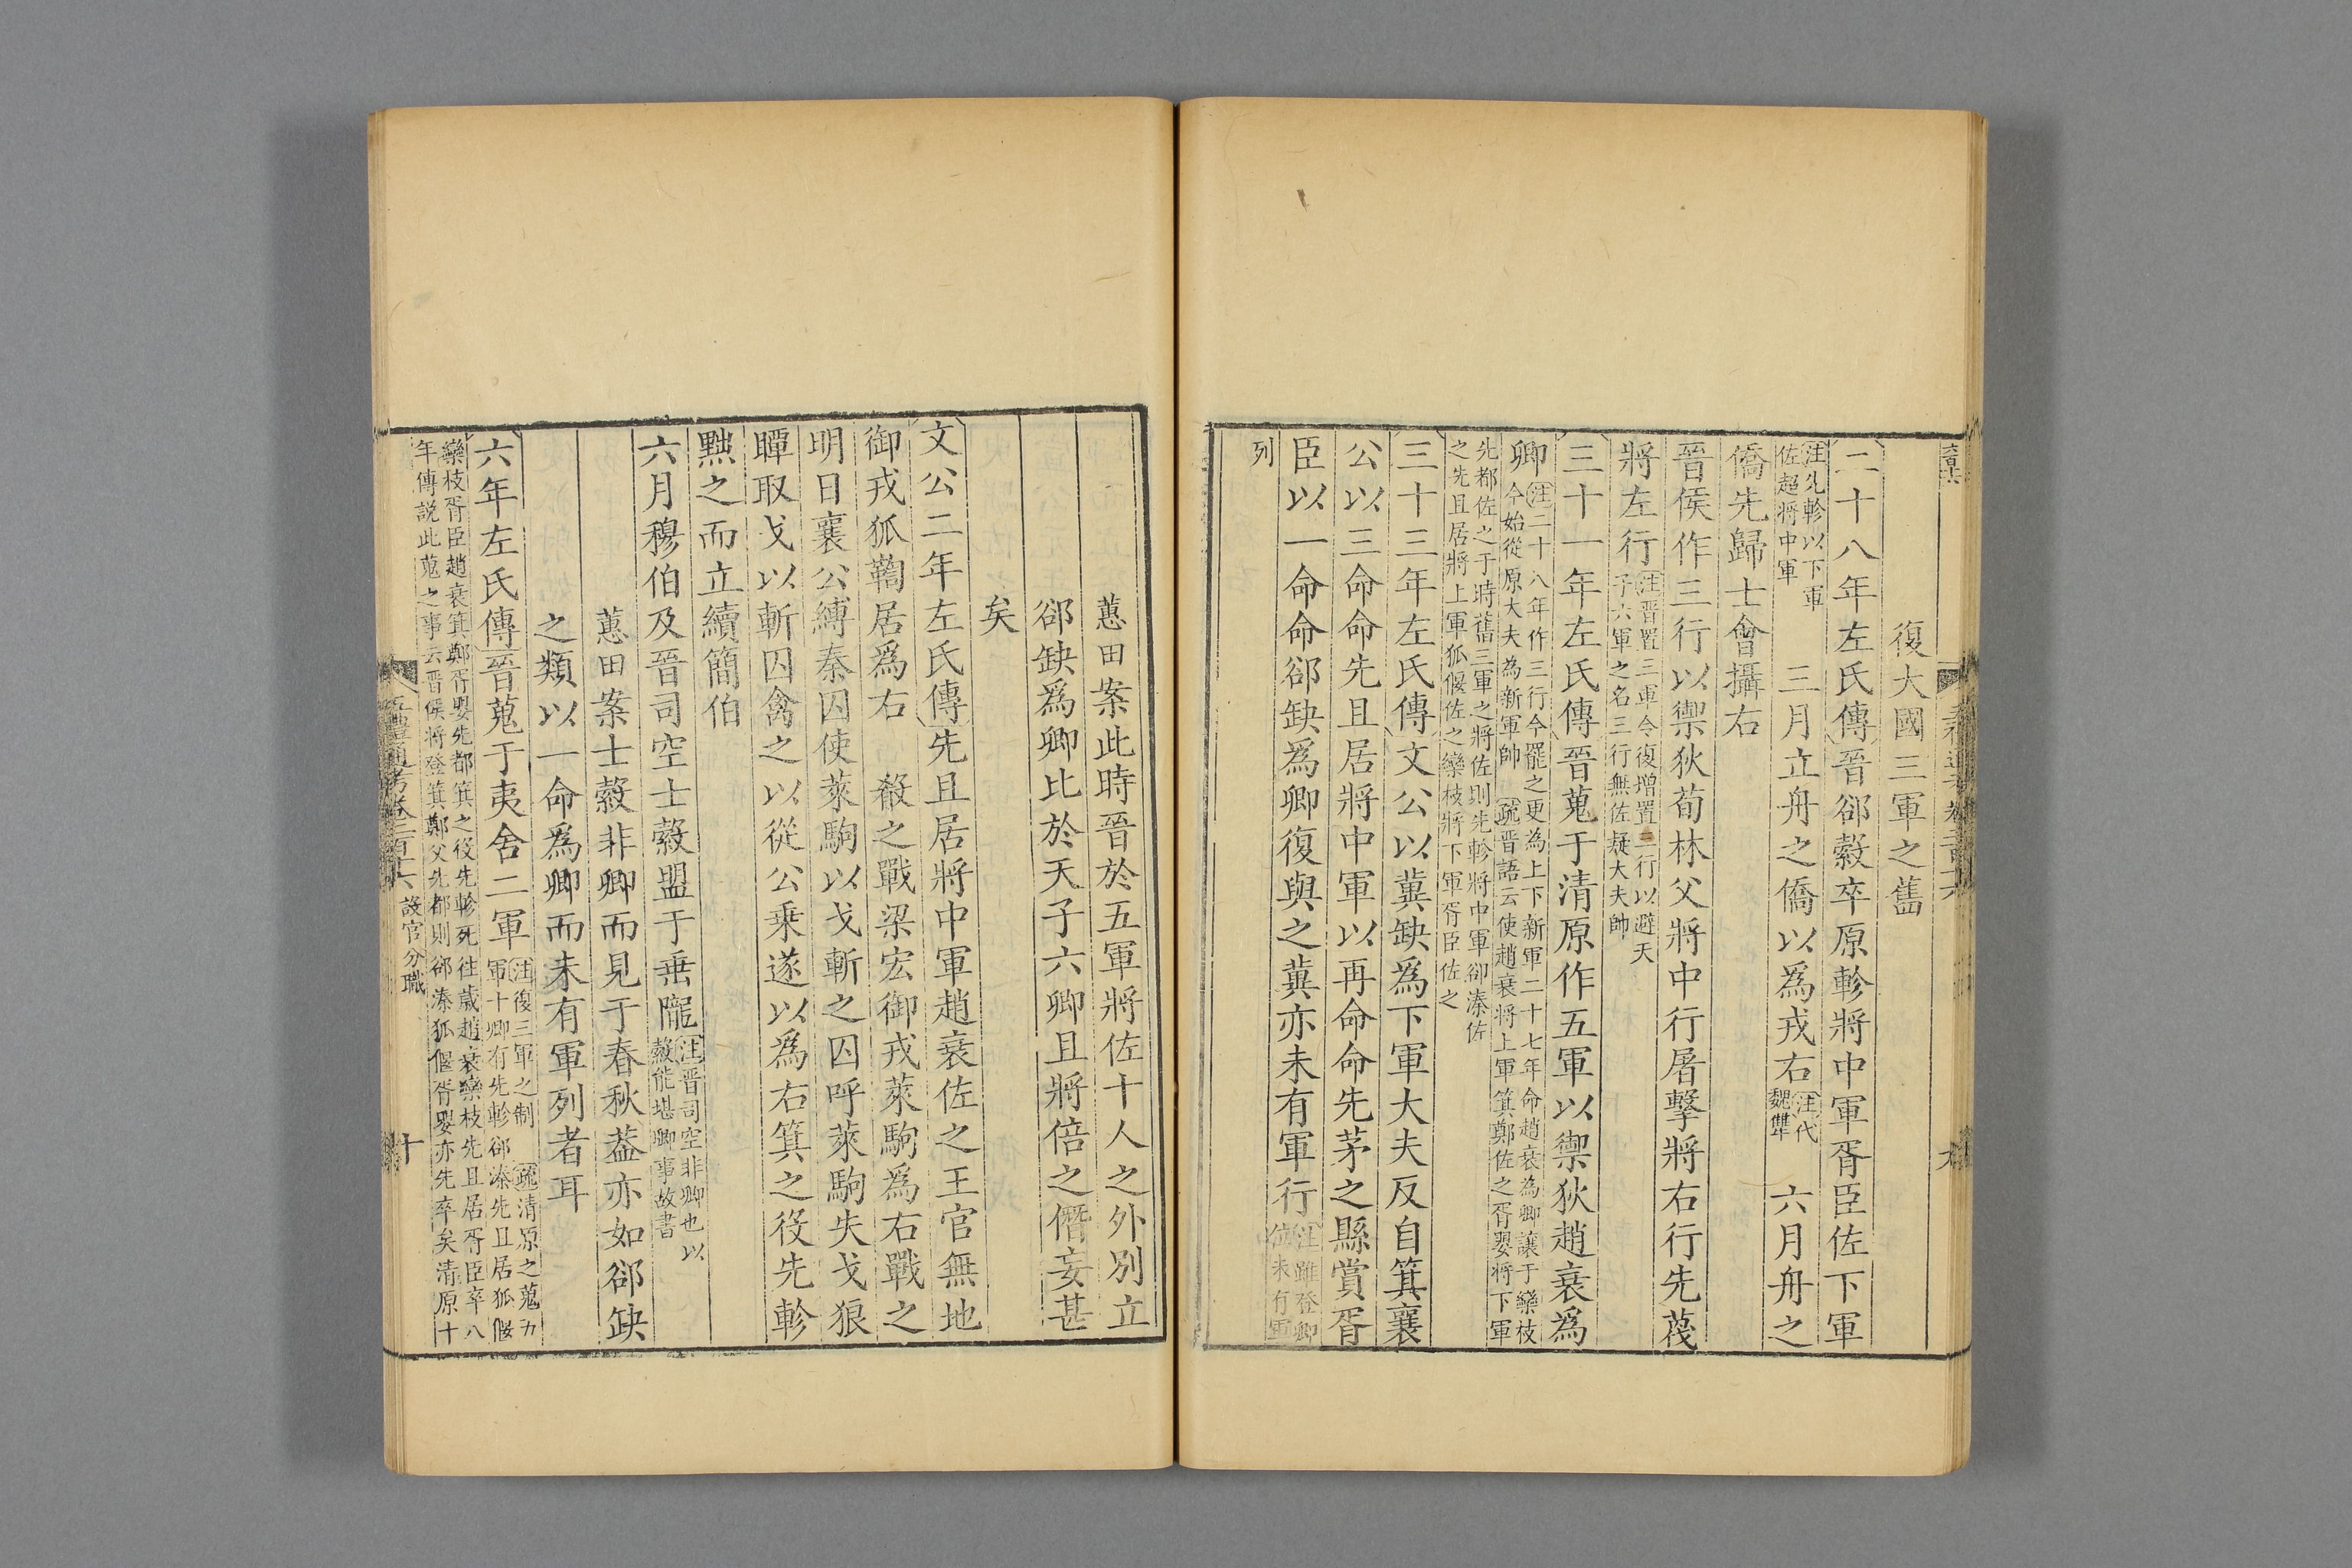 復大國三軍之舊
二十八年左氏傳晉郤縠卒原軫將中軍胥臣佐下軍
注先軫以下軍
佐超將中軍
三月立舟之僑以為戎右
注代
魏犫
六月舟之
僑先歸士會攝右
晉侯作三行以禦狄荀林父將中行屠擊將右行先蔑
將左行
注晉置三軍今復增置三行以避天
子六軍之名三行無佐疑大夫帥
三十一年左氏傳晉蒐于清原作五軍以禦狄趙衰爲
卿
注二十八年作三行今罷之更為上下新軍二十七年命趙衰為卿讓于欒枝
今始從原大夫為新軍帥 疏晉語云使趙衰將上軍箕鄭佐之胥嬰將下軍
先都佐之于時舊三軍之將佐則先軫將中軍郤溱佐
之先且居將上軍狐偃佐之欒枝將下軍胥臣佐之
三十三年左氏傳文公以冀缺爲下軍大夫反自箕襄
公以三命命先且居將中軍以再命命先茅之縣賞胥
臣以一命命郤缺爲卿復與之冀亦未有軍行
注雖登卿
位未有軍
列
蕙田案此時晉於五軍將佐十人之外別立
郤缺爲卿比於天子六卿且將倍之僭妄甚
矣
文公二年左氏傳先且居將中軍趙衰佐之王官無地
御戎狐鞫居爲右 殽之戰梁宏御戎萊駒爲右戰之
明日襄公縛秦囚使萊駒以戈斬之囚呼萊駒失戈狼
瞫取戈以斬囚禽之以從公乘遂以爲右箕之役先軫
黜之而立續簡伯
六月穆伯及晉司空士縠盟于垂隴
注晉司空非卿也以
縠能堪卿事故書
蕙田案士縠非卿而見于春秋葢亦如郤缺
之類以一命爲卿而未有軍列者耳
六年左氏傳晉蒐于夷舍二軍
注復三軍之制 疏清原之蒐五
軍十卿有先軫郤溱先且居狐偃
欒枝胥臣趙衰箕鄭胥嬰先都箕之役先軫死往歲趙衰欒枝先且居胥臣卒八
年傳説此蒐之事云晉侯將登箕鄭父先都則郤溱狐偃胥嬰亦先卒矣清原十
五禮通考卷二百十六 設官分職
十